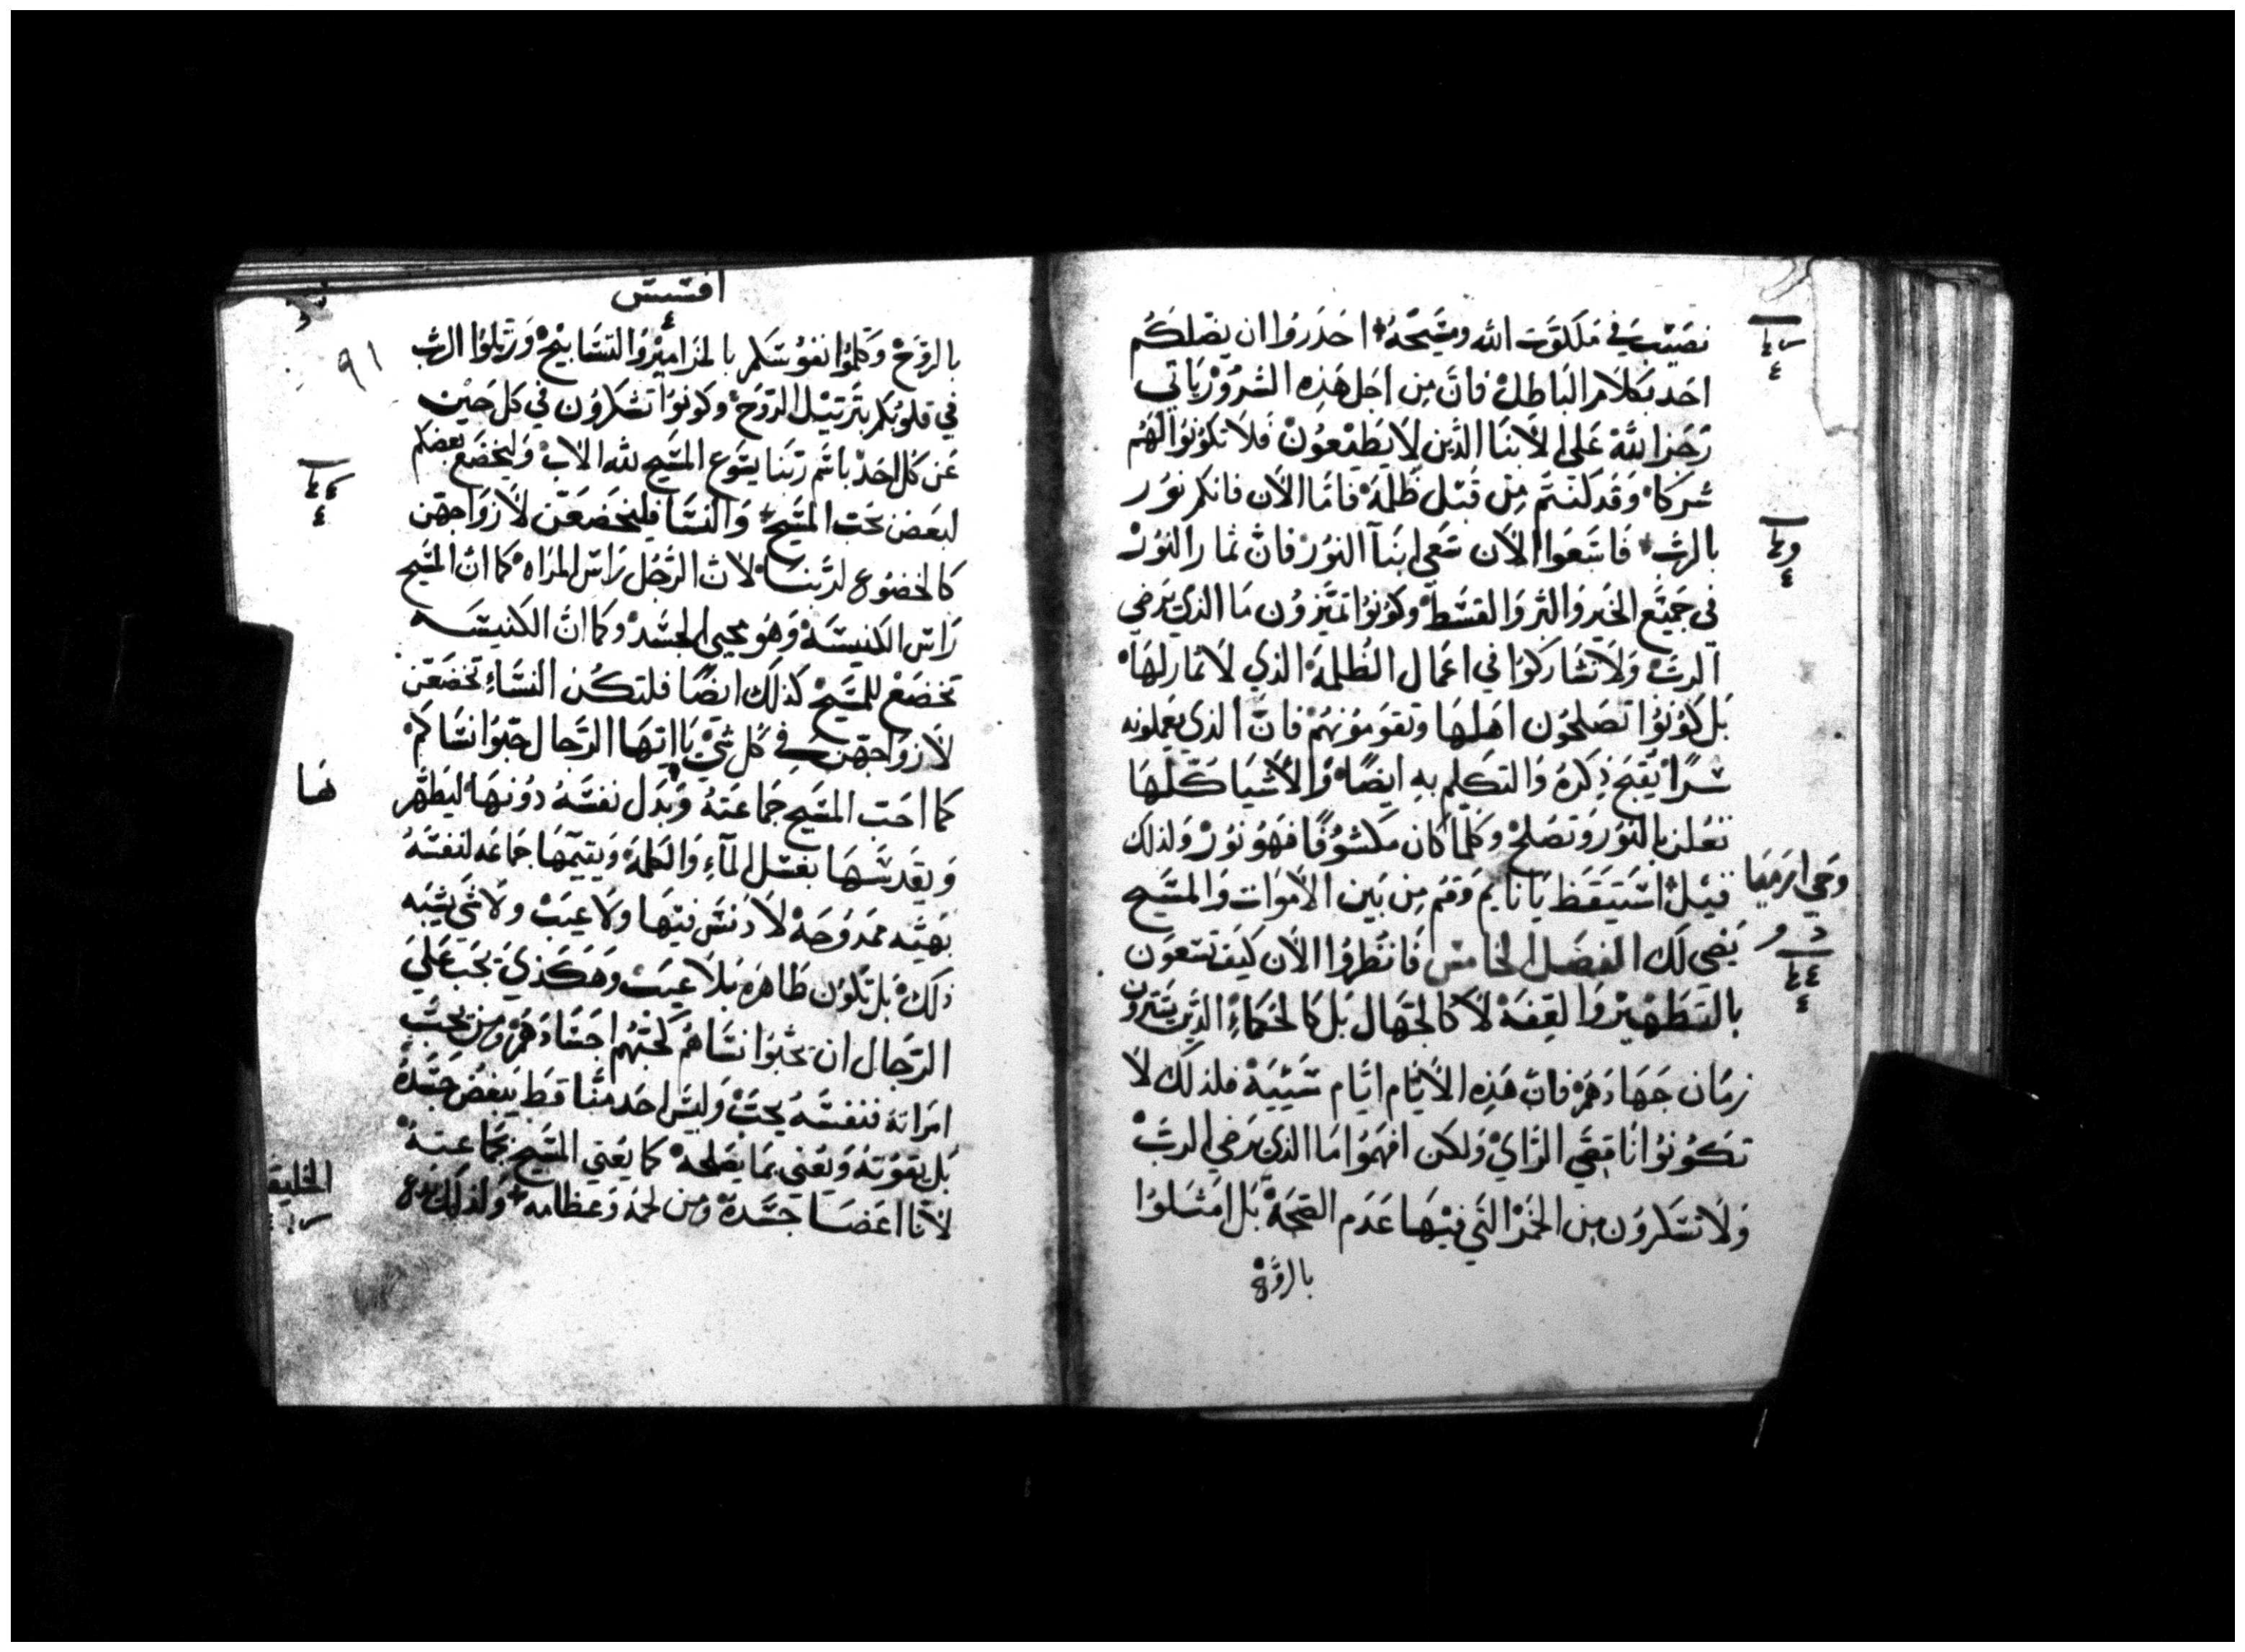 نصيب في ملكوت الله ومسيحه احذروا ان يضلكم
احد بكلام الباطل فان من اجل هذه الشرور ياتي
رجز الله على الابنا الذين لا يطيعون فلا تكونوا لهم
شركا وقد كنتم من قبل ظلمة فاما الان فانكم نور
بالرب فاسعوا الان سعي ابنآ النور فان ثمار النور
في جميع الخير والبر والقسط وكونوا تميزون ما الذي يرضي
الرب ولا تشاركوا في اعمال الظلمة الذي لا ثمار لها
بل كونوا تصلحون اهلها وتقومونهم فان الذي يعملونه
سرًا يقبح ذكره والتكلم به ايضًا والاشيا كلها
تعلن بالنور وتصلح وكلما كان مكشوفًا فهو نور ولذلك
قيل استيقظ يا نايم وقم من بين الاموات والمسيح
وحي ارميا
يضي لك الفصل الخامس فانظروا الان كيف تسعون
بالتطهير والعفة لا كالجهال بل كالحكماء الذين يشترون
زمان جهادهم فان هذه الايام ايام سييه فلذلك لا
تكونوا ناقصي الراي ولكن افهموا ما الذي يرضي الرب
ولا تسكرون من الخمر التي فيها عدم الصحة بل امتلوا
بالروح
افسس
٩١
بالروح وكلموا نفوسكم بالمزامير والتسابيح ورتلوا الرب
في قلوبكم بترتيل الروح وكونوا تشكرون في كل حين
عن كل احد باسم ربنا يسوع المسيح لله الاب وليخضع بعضكم
لبعض بحب المسيح والنسا فليخضعن لازواجهن
كالخضوع لربنا لان الرجل راس المراه كما ان المسيح
راس الكنيسة وهو محيي الجسد وكما ان الكنيسه
تخضع للمسيح كذلك ايضًا فلتكن النساء تخضعن
لازواجهن في كل شي يا ايها الرجال حبوا نساكم
كما احب المسيح جماعته وبدل نفسه دونها ليطهر
ها
ويقدسها بغسل المآء والكلمة ويقيمها جماعه لنفسه
بهيه ممدوحة لا دنس فيها ولا عيب ولا شي يشبه
ذلك بل تكون طاهره بلا عيب وهكذي يجب علي
الرجال ان يحبوا نساهم كحبهم اجسادهم ومن يحب
امراته فنفسه يحب وليس احد منا قط يبغض جسده
بل يقوته ويعني بما يصلحه كما يعني المسيح بجماعته
لانا اعضا جسده ومن لحمه وعظامه ولذلك يدع
الخليقه